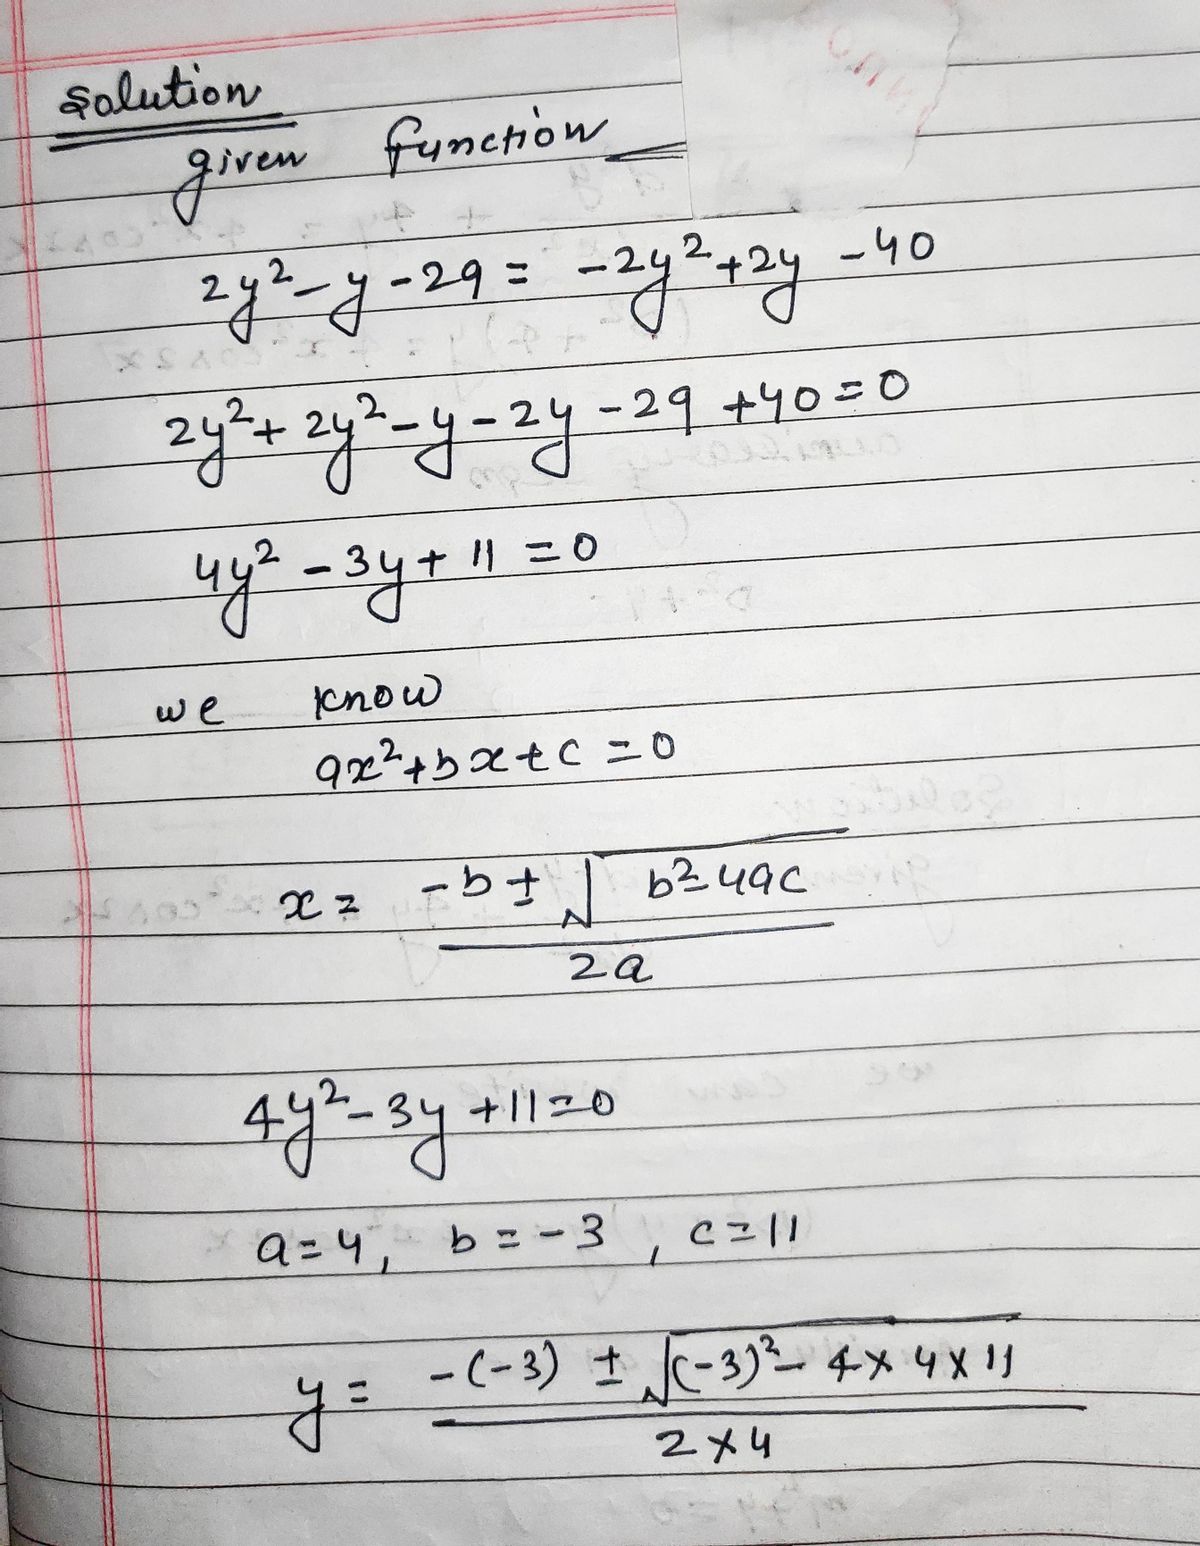 Solution
given function
2y² - y - 29 = -2y² + 2y - 40
2y² + 2y² - y - 2y - 29 + 40 = 0
4y² - 3y + 11 = 0
we know
ax² + bx + c = 0
x = (-b ± √(b² - 4ac)) / 2a
4y² - 3y + 11 = 0
a = 4, b = -3, c = 11
y = (-(-3) ± √((-3)² - 4 × 4 × 11)) / (2 × 4)